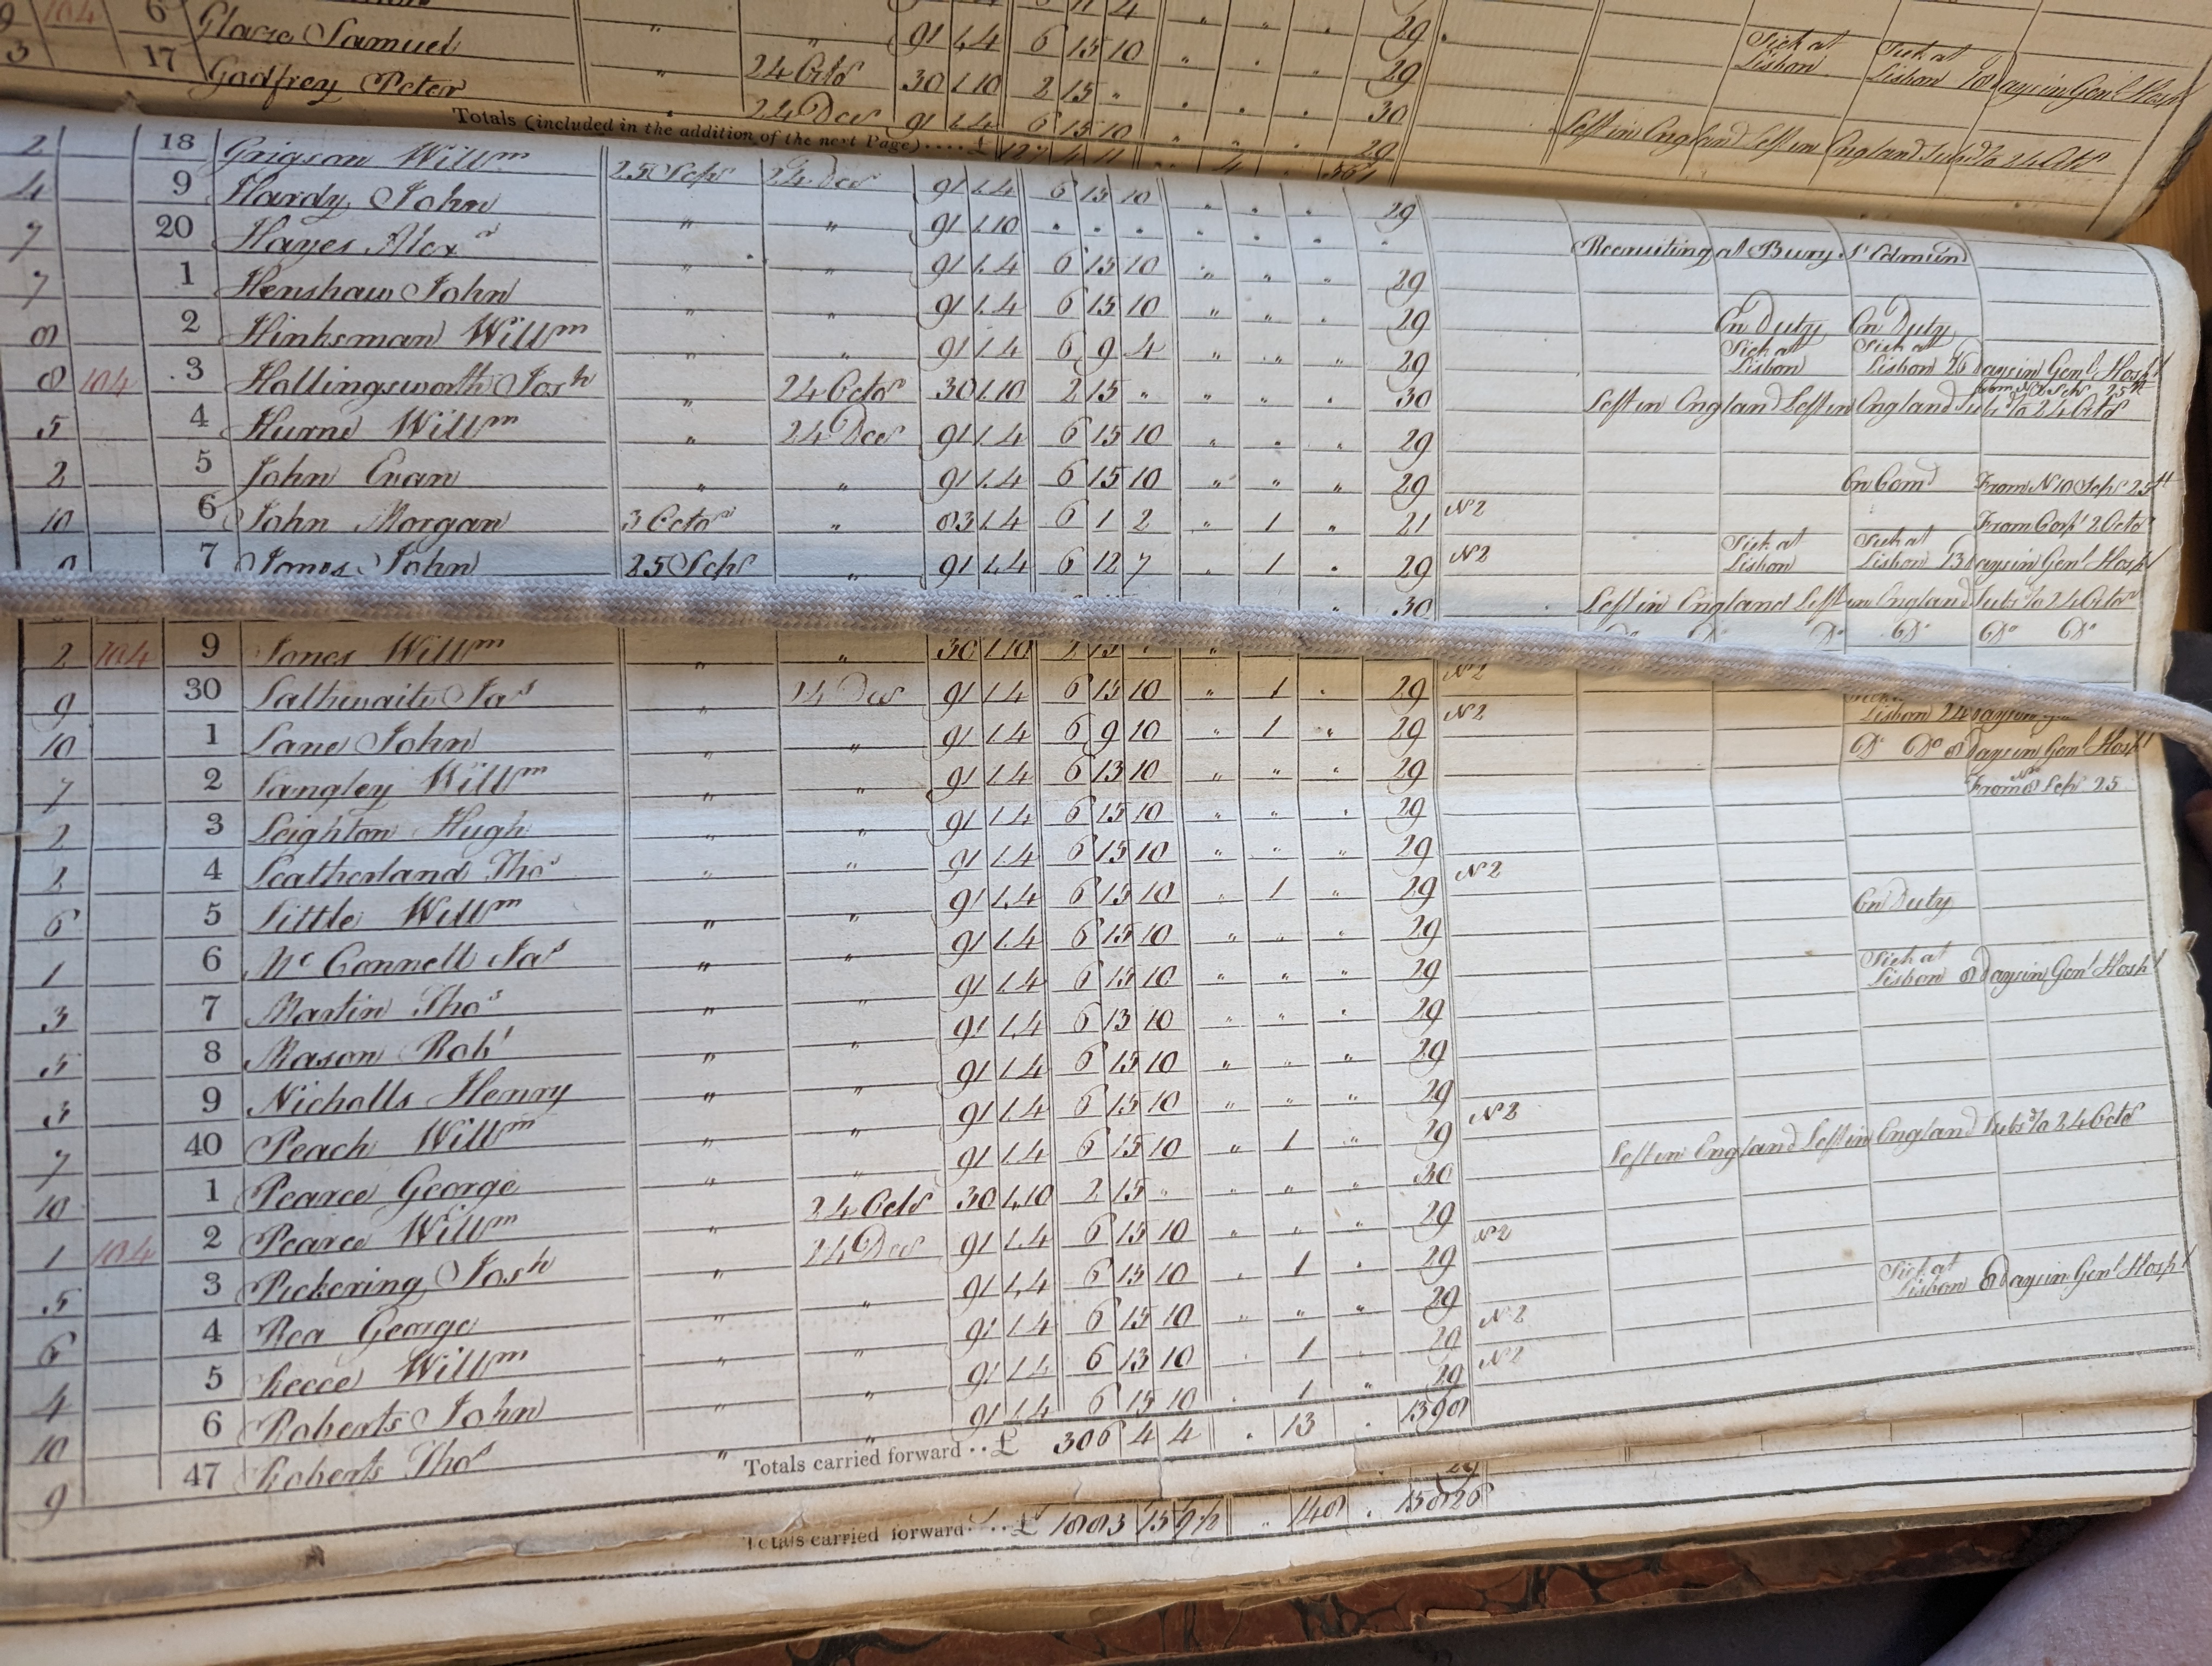 9 104 6 Glaze Samuel " " 91 1.4 6 15 10 " " . 29
3 17 Godfrey Peter " 24 Octr 30 1.10 2 15 " . . . 29 Sick at Lisbon Sick at Lisbon Days in Genl Hospl
24 Decr 91 1.4 6 15 10 30
Totals (included in the addition of the next Page) .... £ 127 4 11 " 4 . 29
Left in England Left in England Subsd to 24 Octr
2 18 Grigson Willm 25 Sepr 24 Decr 91 1.4 6 15 10 . . . 29
4 9 Hardy John " " 91 1.10 . . . . . . . Recruiting at Bury St Edmund
7 20 Hayes Alexr " " 91 1.4 6 15 10 " " . 29
7 1 Henshaw John " " 91 1.4 6 15 10 " " . 29 On Duty On Duty
8 2 Hinksman Willm " " 91 1.4 6 9 4 " " " 29 Sick at Lisbon Sick at Lisbon 26 Days in Genl Hospl
8 104 3 Hollingsworth Josh " 24 Octr 30 1.10 2 15 " " " . 30 Left in England Left in England Subs to 24 Octr
5 4 Hurne Willm " 24 Decr 91 1.4 6 15 10 " . . 29
2 5 John Evan " " 91 1.4 6 15 10 " " " 29 On Comd From N 10 Sepr 25th
10 6 John Morgan 3 Octor " 83 1.4 6 1 2 " 1 " 21 N2 From Corpl 2 Octr
7 Jones John 25 Sepr " 91 1.4 6 12 7 . 1 . 29 N2 Sick at Lisbon Sick at Lisbon 13 Days in Genl Hospl
30 Left in England Left in England Subs to 24 Octor
2 104 9 Jones Willm " " 30 1.10 2 15 . " Do Do Do Do Do Do
9 30 Lathwaite Jas " 24 Decr 91 1.4 6 15 10 " 1 . 29 N2
10 1 Lane John " " 91 1.4 6 9 10 " 1 " 29 N2 Lisbon 24 Days in
7 2 Langley Willm " " 91 1.4 6 13 10 " " " 29 Do Do 8 Days in Genl Hospl
2 3 Leighton Hugh " " 91 1.4 6 15 10 " " . 29 From 8 Sepr 25
2 4 Leatherland Thos " " 91 1.4 6 15 10 " " " 29
6 5 Little Willm " " 91 1.4 6 15 10 " 1 " 29 N2
1 6 McConnell Jas " " 91 1.4 6 15 10 " " . 29 On Duty
3 7 Martin Thos " " 91 1.4 6 15 10 " " " 29
5 8 Mason Robt " " 91 1.4 6 13 10 " " . 29 Sick at Lisbon 8 Days in Genl Hospl
3 9 Nicholls Henry " " 91 1.4 6 15 10 " " " 29
7 40 Peach Willm " " 91 1.4 6 15 10 " " " 29
10 1 Pearce George " " 91 1.4 6 15 10 " 1 " 29 N2
1 104 2 Pearce Willm " 24 Octr 30 1.10 2 15 " " " " 30 Left in England Left in England Subsd to 24 Octr
5 3 Pickering Josh " 24 Decr 91 1.4 6 15 10 " " " 29
6 4 Rea George " " 91 1.4 6 15 10 . 1 . 29 N2
4 5 Reece Willm " " 91 1.4 6 15 10 " " " 29
10 6 Roberts John " " 91 1.4 6 13 10 . 1 . 29 N2 Sick at Lisbon 8 Days in Genl Hospl
9 47 Roberts Thos " " 91 1.4 6 15 10 . 1 " 29 N2
Totals carried forward .. £ 306 4 4 . 13 . 1398
29
Totals carried forward ... £ 1883 15 9½ " 148 .